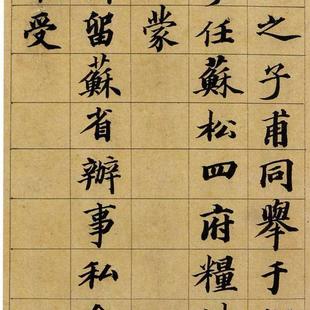 之子甫同舉于
任蘇松四府糧
蒙
留蘇省辦事私
受